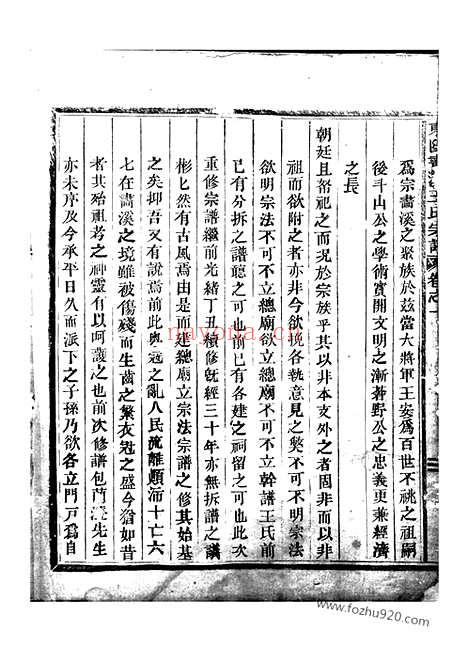 為宗畵溪之聚族於兹當大將軍王安爲百世不祧之祖嗣
後斗山公之學術實開文明之漸莘野公之忠義更兼經濟
之長
朝廷且旉祀之而況於宗族乎其以非本支外之者固非而以非
祖而欲附之者亦非今欲挽各執意見之獘不可不明宗法
欲明宗法不可不立總廟欲立總廟不可不立幹譜王氏前
已有分拆之譜聽之可也已有各建之祠留之可也此次
重修宗譜繼前光緒丁丑積修旣經三十年亦無拆譜之議
彬乜然有古風焉由是而建總廟立宗法宗譜之修其始基
之矣抑吾又有說焉前此粤冦之亂人民流離顚沛十亡六
七在畵溪之境雖被傷殘而生齒之繁衣冠之盛今猶如昔
者其殆祖考之神靈有以呵護之也前次修譜包先生
亦未序及今承平日久而派下之子孫乃欲各立門戸爲自
王氏宗譜
nayona.cn
www.fozhu920.com